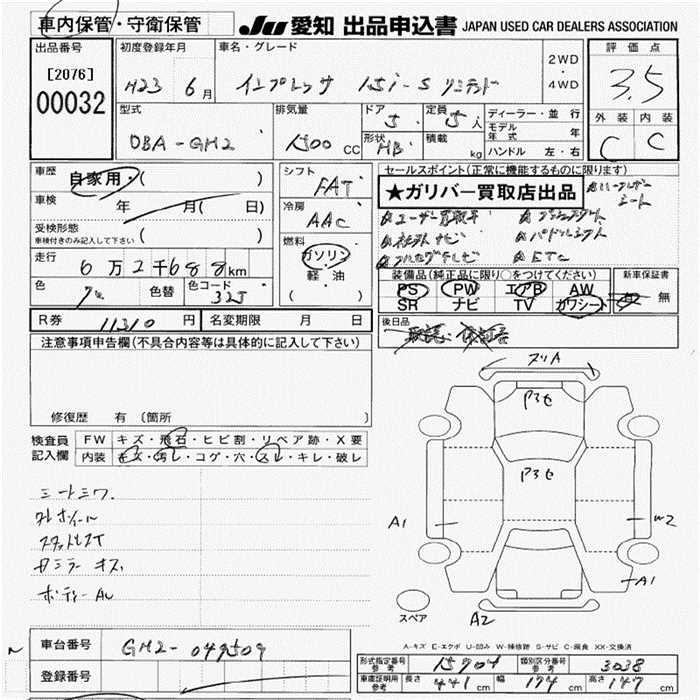 車内保管・守衛保管
JU 愛知 出品申込書 JAPAN USED CAR DEALERS ASSOCIATION
出品番号
[2076]
00032
初度登録年月
H23 6月
車名・グレード
インプレッサ 15i-S リミテッド
2WD・4WD
評価点
3.5
外装 内装
C C
型式
DBA-GH2
排気量
1500 CC
ドア
5
形状
HB
定員
5人
積載
kg
ディーラー・並行
モデル年式 年
ハンドル 左・右
車歴
自家用・( )
車検
年 月( 日)
受検形態
車検付きのみ記入して下さい
( )
走行
6万2千688km
色
色替
色コード
32J
シフト
FAT
冷房
AAC
燃料
ガソリン
軽・油
( )
セールスポイント(正常に機能するものに限ります)
★ガリバー買取店出品
ユーザー買取車
社外ナビ
フルセグテレビ
パドルシフト
ETC
シート
装備品(純正品に限り○をつけてください)
PS PW エアB AW
SR ナビ TV カワシート
新車保証書
無
後日品
R券 11310円
名変期限 月 日
注意事項申告欄(不具合内容等は具体的に記入して下さい)
修復歴 有(箇所
検査員記入欄
FW キズ・飛石・ヒビ割・リペア跡・X要
内装 キズ・汚レ・コゲ・穴・スレ・キレ・破レ
シートシワ
カミラーキズ
ボディーAU
ヌリA
P3セ
P3セ
A1
W2
A1
A2
スペア
A-キズ E-エクボ U-凹み W-補修跡 S-サビ C-腐食 XX-交換済
車台番号
GH2-049509
登録番号
型式指定番号 参考
15904
類別区分番号 参考
3038
車庫証明用 参考
長さ 441cm
幅 174cm
高さ 147cm